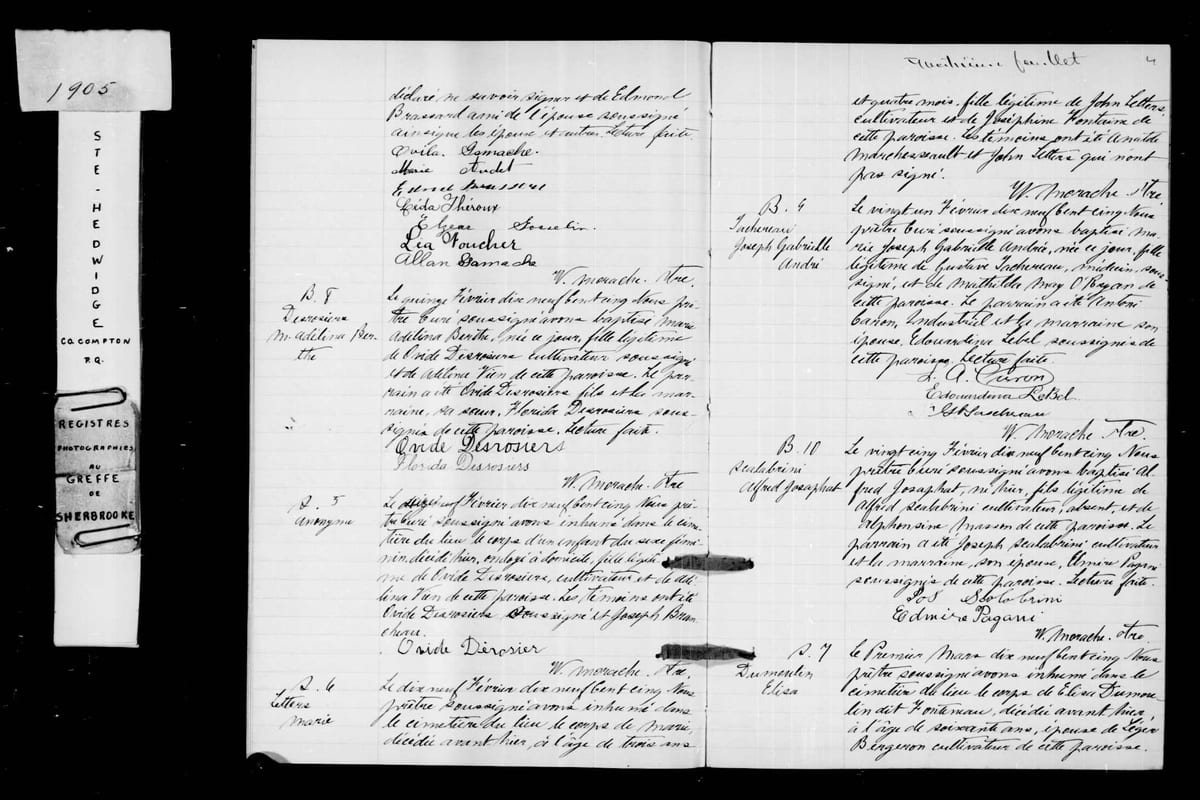 1905
STE-HEDWIDGE
CO. COMPTON
P.Q.
REGISTRES
PHOTOGRAPHIES
AU
GREFFE
DE
SHERBROOKE
déclaré ne savoir signer et de Edmond
Brassard ami de l'épouse soussigné
ainsi que les époux et autres. Lecture faite.
Ovila Gamache.
Marie Audet
Edmond Brassard
Cédia Théroux
Gosselin.
Léa Foucher
Allan Gamache
W. Morache. Ptre.
B. 8
Desrosiers
M. Adélina Ber-
the
Le quinze Février dix neuf cent cinq Nous prê-
tre Curé soussigné avons baptisé Marie
Adélina Berthe, née ce jour, fille légitime
de Ovide Desrosiers cultivateur soussigné
et de Adélina Vien de cette paroisse. Le par-
rain a été Ovide Desrosiers fils et la mar-
raine, sa soeur, Florida Desrosiers sous-
signés de cette paroisse. Lecture faite.
Ovide Desrosiers
Florida Desrosiers
W. Morache. Ptre
S. 5
Anonyme
Le neuf Février dix neuf cent cinq Nous prê-
tre Curé soussigné avons inhumé dans le cime-
tière du lieu le corps d'un enfant du sexe fémi-
nin, décédé hier, ondoyé à domicile, fille légiti-
me de Ovide Desrosiers, cultivateur et de Adé-
lina Vien de cette paroisse. Les témoins ont été
Ovide Desrosiers soussigné et Joseph Bran-
cheau.
Ovide Dérosier
W. Morache. Ptre.
S. 6
Letters
Marie
Le dix neuf Février dix neuf cent cinq Nous
prêtre soussigné avons inhumé dans
le cimetière du lieu le corps de Marie,
décédée avant hier, à l'âge de trois ans
feuillet
4
et quatre mois, fille légitime de John Letters,
cultivateur et de Joséphine Fontaine de
cette paroisse. Les témoins ont été Anatole
Marchessault et John Letters qui n'ont
pas signé.
W. Morache. Ptre
B. 9
Tachereau
Joseph Gabrielle
André
Le vingt un Février dix neuf cent cinq Nous
prêtre Curé soussigné avons baptisé Ma-
rie Joseph Gabrielle André, née ce jour, fille
légitime de Gustave Tachereau, médecin, sous-
signé, et de Mathilde May O'Ryan de
cette paroisse. Le parrain a été
Caron, Industriel et la marraine son
épouse, Edouardina Lebel soussignés de
cette paroisse. Lecture faite.
L. A. Caron
Edouardina LeBel
W. Morache. Ptre.
B. 10
Scalabrini
Alfred Josaphat
Le vingt cinq Février dix neuf cent cinq Nous
prêtre Curé soussigné avons baptisé Al-
fred Josaphat, né hier, fils légitime de
Alfred Scalabrini cultivateur, absent, et de
Alphonsine Masson de cette paroisse. Le
parrain a été Joseph Scalabrini cultivateur
et la marraine, son épouse,
soussignés de cette paroisse. Lecture faite.
Jos Scolobrini
Edmire Pagani
W. Morache. Ptre.
S. 7
Dumoulin
Elisa
Le Premier Mars dix neuf cent cinq Nous
prêtre soussigné avons inhumé dans le
cimetière du lieu le corps de Elisa Dumou-
lin dit Fonteneau, décédée avant hier,
à l'âge de soixante ans, épouse de Léger
Bergeron cultivateur de cette paroisse.